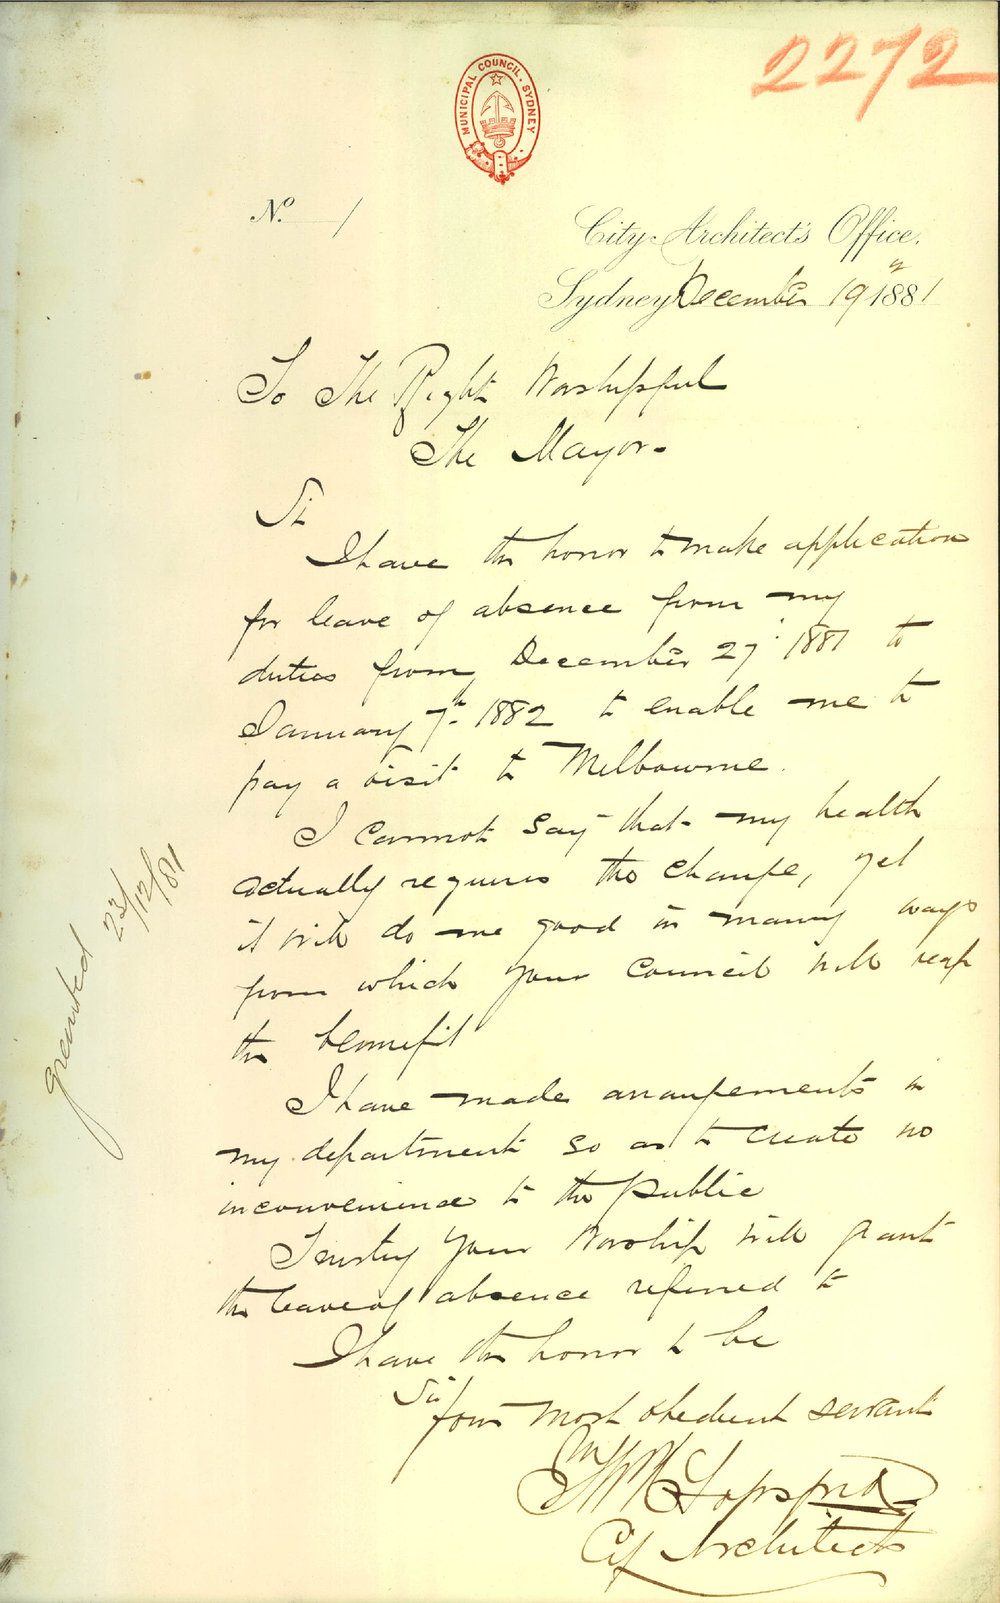 2272
MUNICIPAL COUNCIL. SYDNEY.
No. 1
City Architect's Office.
Sydney December 19 1881
To The Right Worshipful
The Mayor -
Sir
I have the honor to make application
for leave of absence from my
duties from December 27 1881 to
January 7th 1882 to enable me to
pay a visit to Melbourne.
I cannot say that my health
actually requires the change, yet
it will do me good in many ways
from which your Council will reap
the benefit
I have made arrangements in
my department so as to create no
inconvenience to the public
Trusting your Worship will grant
the leave of absence referred to
I have the honor to be
Sir
Your most obedient servant
City Architect
granted 23/12/81